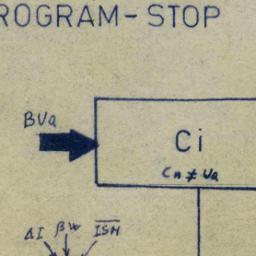 ROGRAM-STOP
BVa
Ci
Cn ≠ Ua
ΔI βw ISH